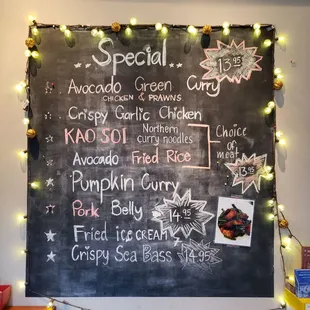 Special
Avocado Green Curry
CHICKEN & PRAWNS
13.95
Crispy Garlic Chicken
KAO SOI Northern curry noodles
Choice of meat
Avocado Fried Rice
13.95
Pumpkin Curry
Pork Belly
14.95
Fried ICE CREAM
Crispy Sea Bass 14.95